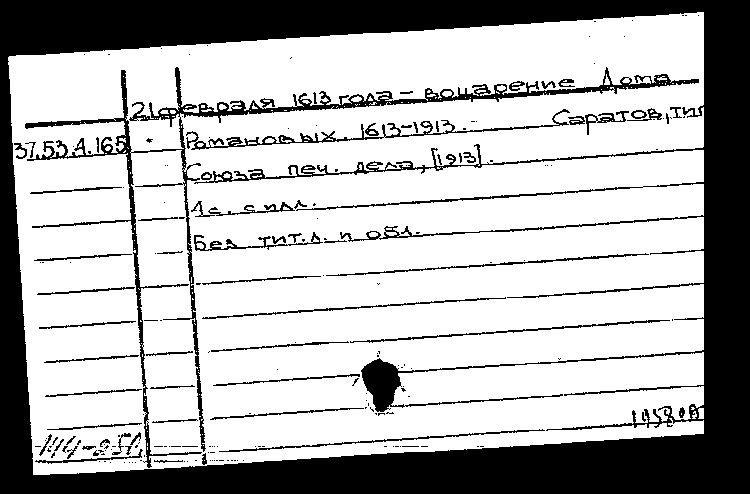 21 февраля 1613 года – воцарение Дома
37.53.А.165 Романовых. 1613-1913. - Саратов, тип
Союза печ. дела, [1913].
1 с. с илл.
Без тит. л. и обл.